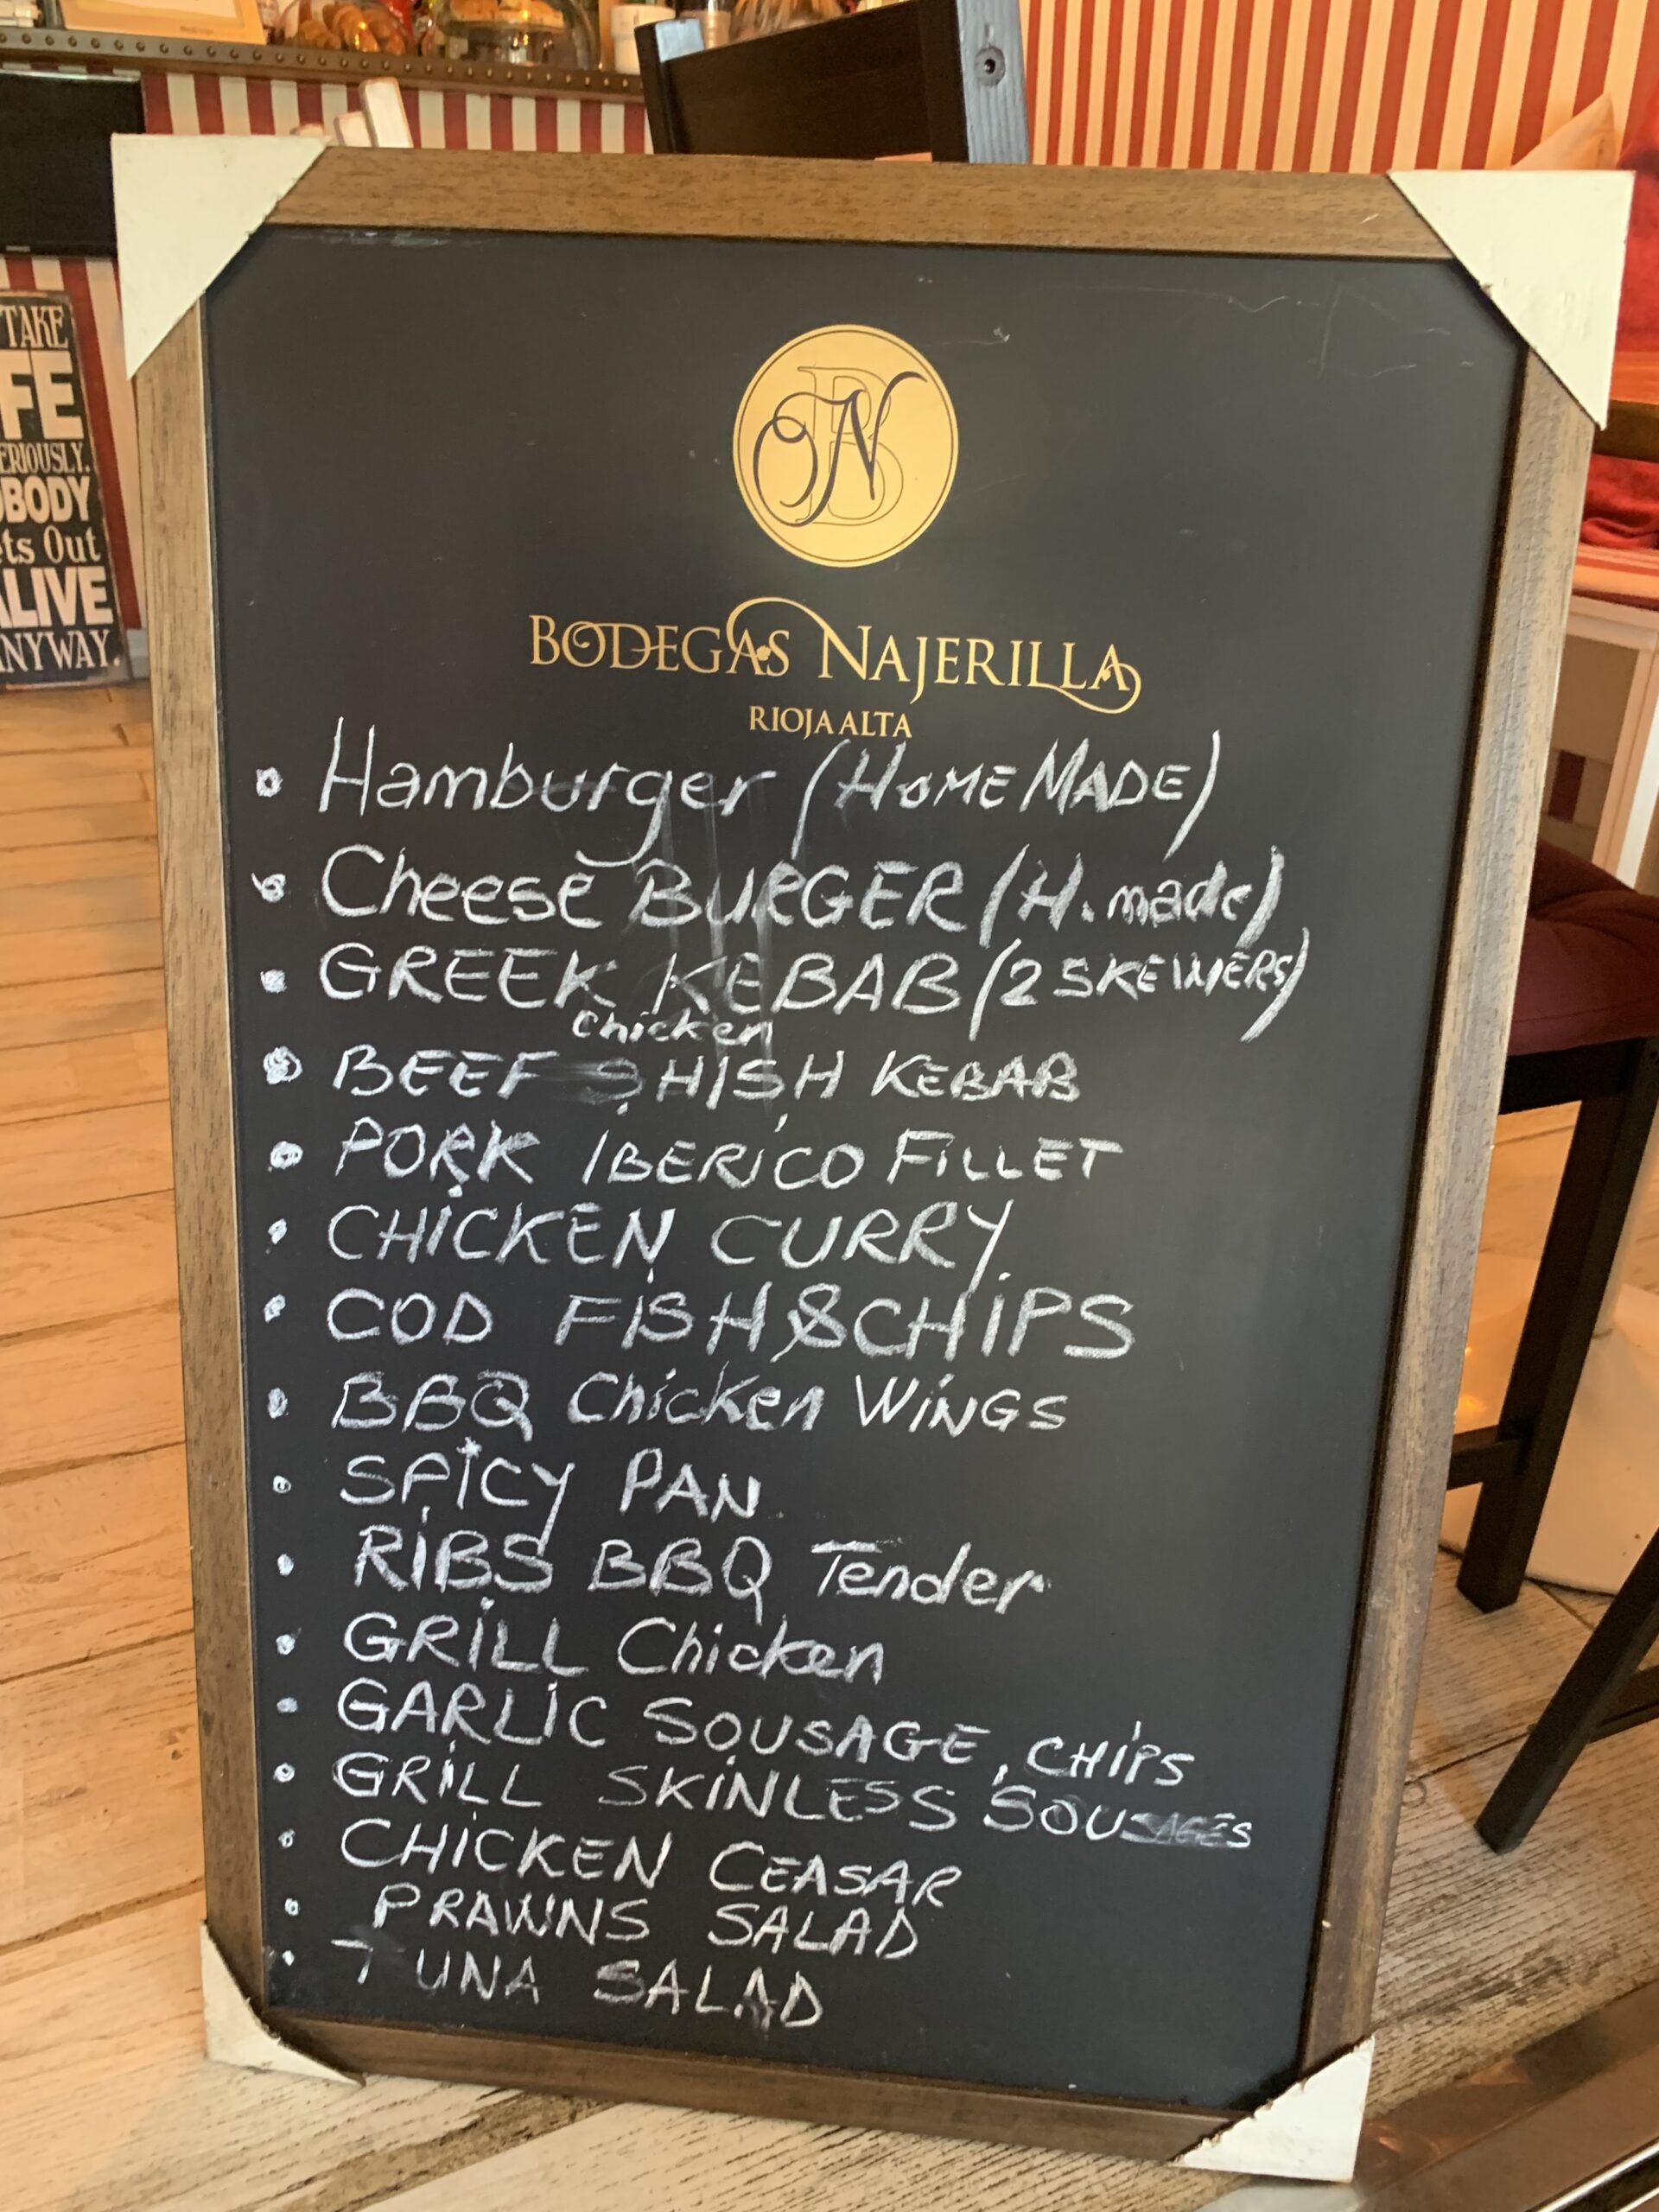 TAKE
FE
ERIOUSLY.
OBODY
ets Out
ALIVE
ANYWAY.
BN
BODEGAS NAJERILLA
RIOJA ALTA
Hamburger (HOME MADE)
Cheese BURGER (H. made)
GREEK KEBAB (2 SKEWERS)
Chicken
BEEF SHISH KEBAB
PORK IBERICO FILLET
CHICKEN CURRY
COD FISH & CHIPS
BBQ Chicken WINGS
SPICY PAN
RIBS BBQ Tender
GRILL Chicken
GARLIC SOUSAGE, CHIPS
GRILL SKINLESS SOUSAGES
CHICKEN CEASAR
PRAWNS SALAD
TUNA SALAD